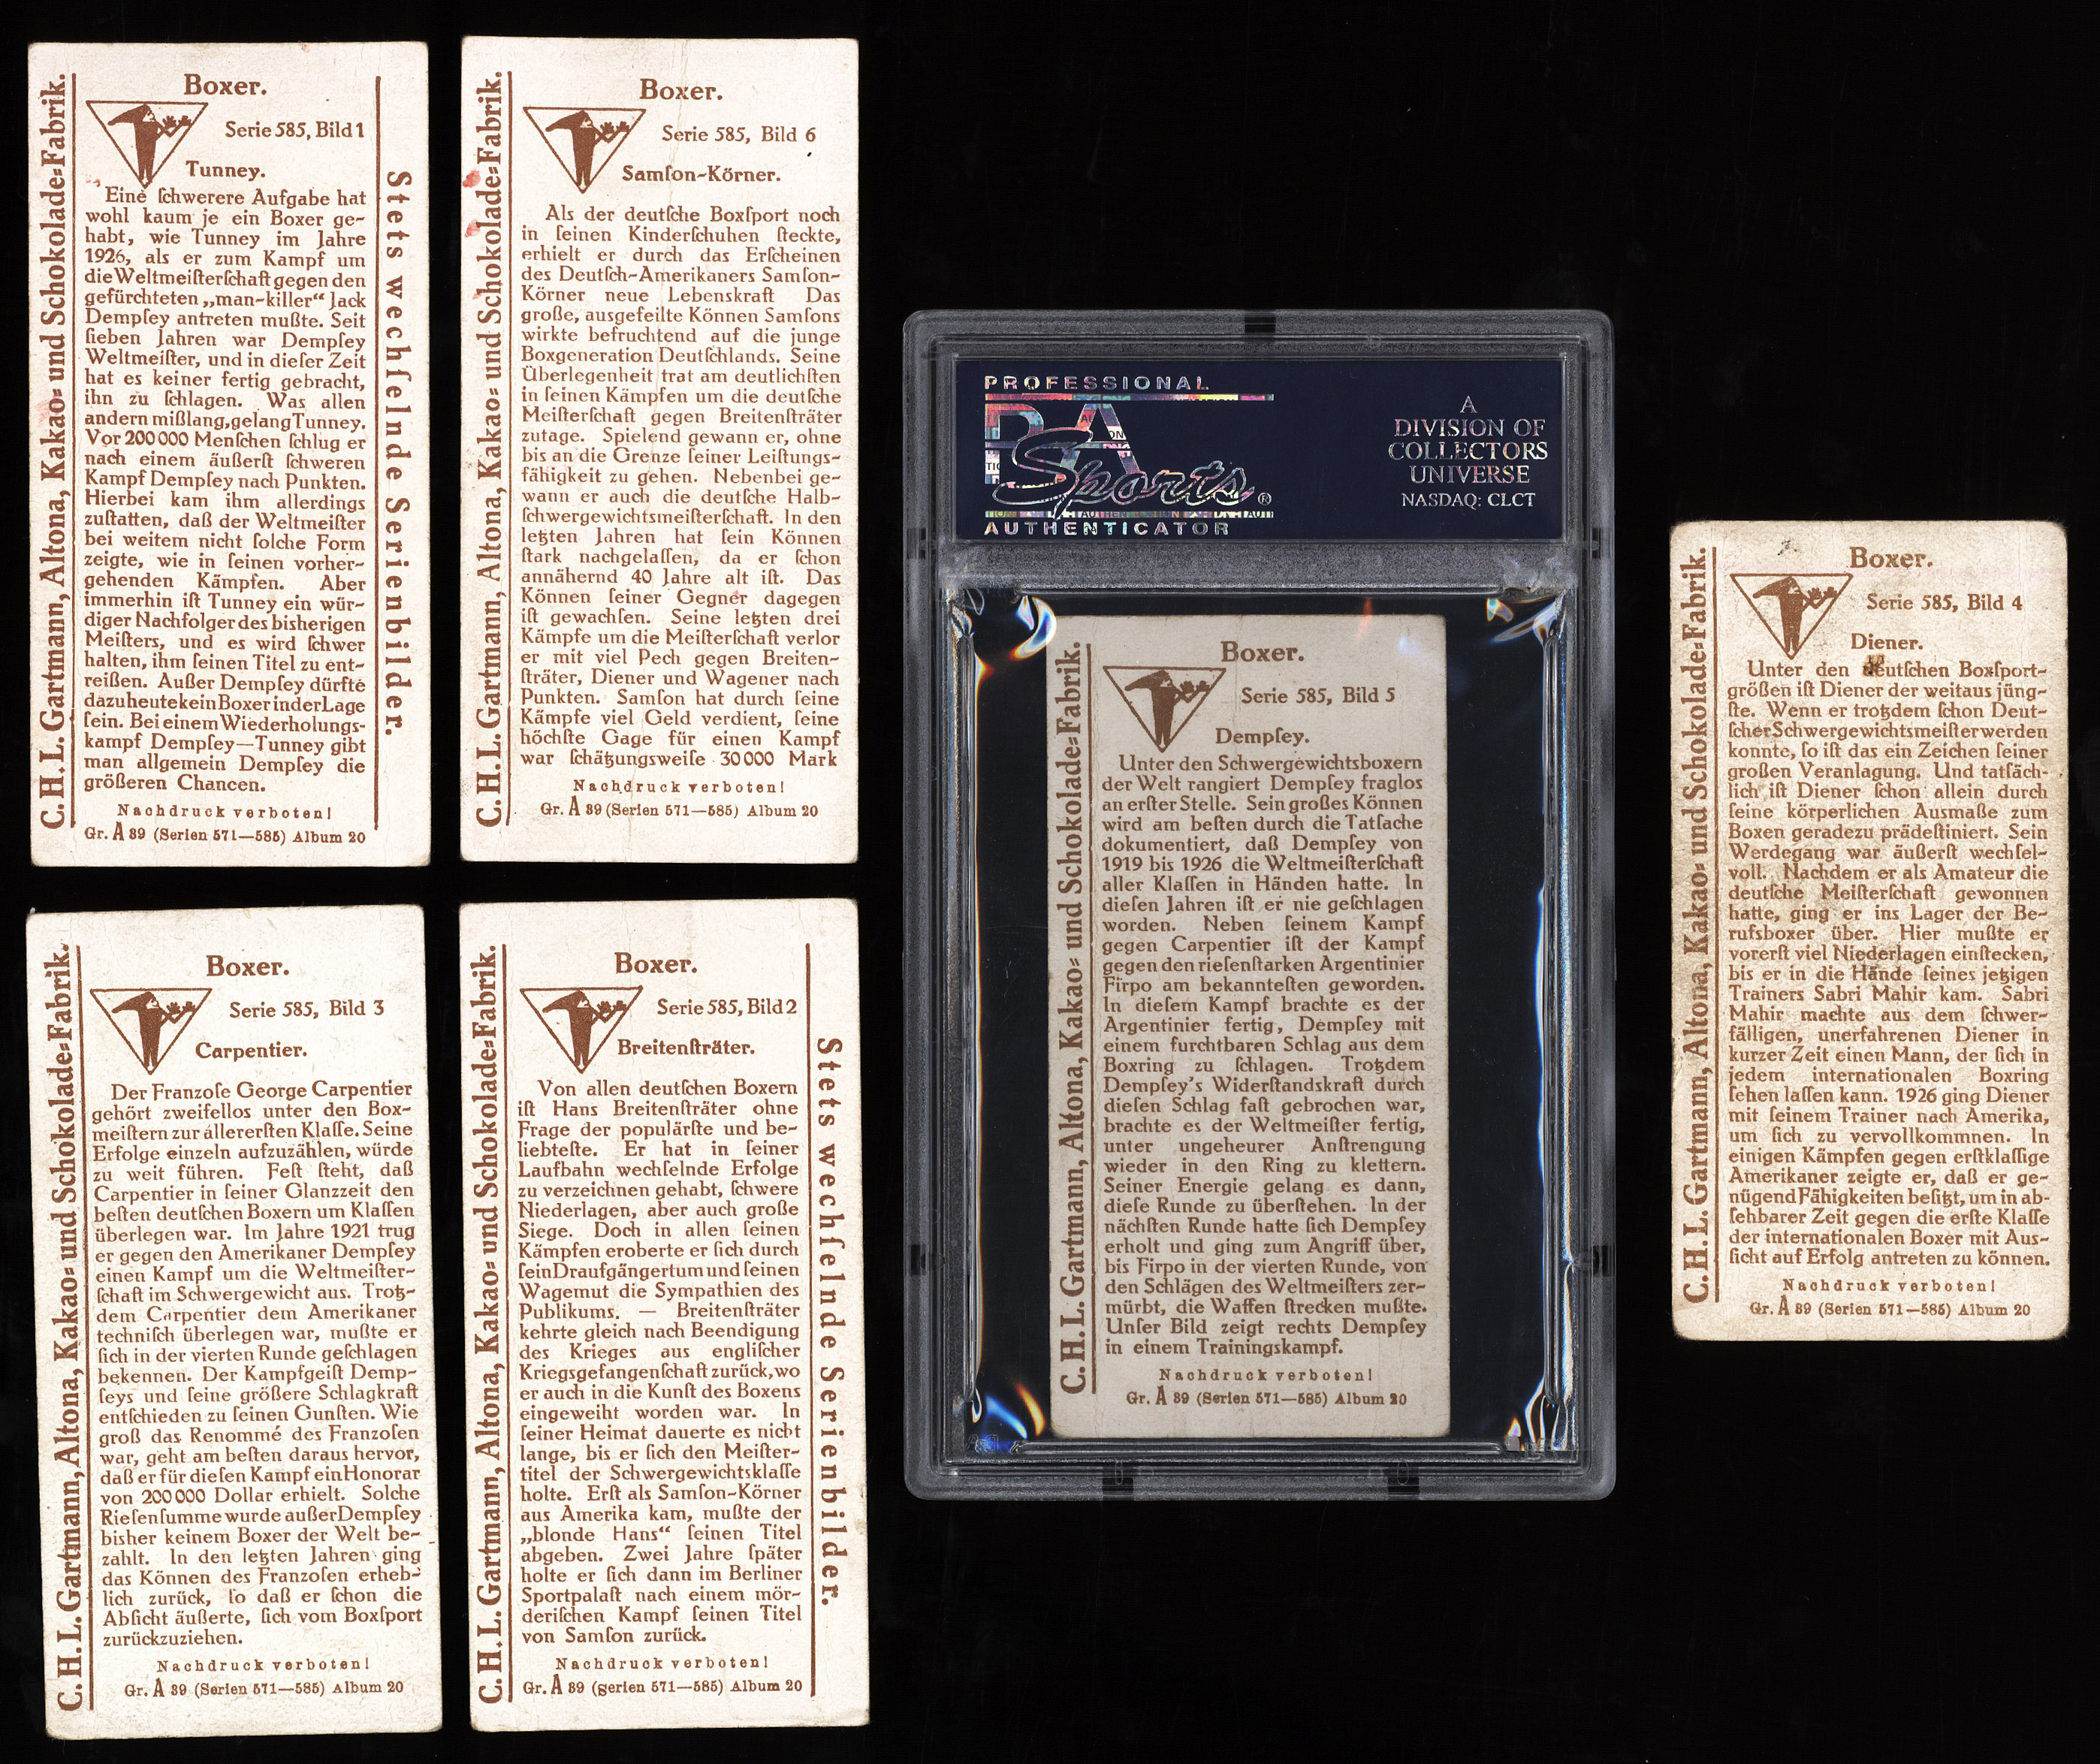 C.H.L. Gartmann, Altona, Kakao= und Schokolade=Fabrik.
Boxer.
Serie 585, Bild 1
Tunney.
Eine ſchwerere Aufgabe hat
wohl kaum je ein Boxer ge-
habt, wie Tunney im Jahre
1926, als er zum Kampf um
die Weltmeiſterſchaft gegen den
gefürchteten „man-killer“ Jack
Dempſey antreten mußte. Seit
ſieben Jahren war Dempſey
Weltmeiſter, und in dieſer Zeit
hat es keiner fertig gebracht,
ihn zu ſchlagen. Was allen
andern mißlang, gelang Tunney.
Vor 200000 Menſchen ſchlug er
nach einem äußerſt ſchweren
Kampf Dempſey nach Punkten.
Hierbei kam ihm allerdings
zuſtatten, daß der Weltmeiſter
bei weitem nicht ſolche Form
zeigte, wie in ſeinen vorher-
gehenden Kämpfen. Aber
immerhin iſt Tunney ein wür-
diger Nachfolger des bisherigen
Meiſters, und es wird ſchwer
halten, ihm ſeinen Titel zu ent-
reißen. Außer Dempſey dürfte
dazu heute kein Boxer in der Lage
ſein. Bei einem Wiederholungs-
kampf Dempſey—Tunney gibt
man allgemein Dempſey die
größeren Chancen.
Nachdruck verboten!
Gr. A 39 (Serien 571—585) Album 20
Stets wechſelnde Serienbilder.
C.H.L. Gartmann, Altona, Kakao= und Schokolade=Fabrik.
Boxer.
Serie 585, Bild 6
Samſon-Körner.
Als der deutſche Boxſport noch
in ſeinen Kinderſchuhen ſteckte,
erhielt er durch das Erſcheinen
des Deutſch-Amerikaners Samſon-
Körner neue Lebenskraft Das
große, ausgefeilte Können Samſons
wirkte befruchtend auf die junge
Boxgeneration Deutſchlands. Seine
Überlegenheit trat am deutlichſten
in ſeinen Kämpfen um die deutſche
Meiſterſchaft gegen Breitenſträter
zutage. Spielend gewann er, ohne
bis an die Grenze ſeiner Leiſtungs-
fähigkeit zu gehen. Nebenbei ge-
wann er auch die deutſche Halb-
ſchwergewichtsmeiſterſchaft. In den
letzten Jahren hat ſein Können
ſtark nachgelaſſen, da er ſchon
annähernd 40 Jahre alt iſt. Das
Können ſeiner Gegner dagegen
iſt gewachſen. Seine letzten drei
Kämpfe um die Meiſterſchaft verlor
er mit viel Pech gegen Breiten-
ſträter, Diener und Wagener nach
Punkten. Samſon hat durch ſeine
Kämpfe viel Geld verdient, ſeine
höchſte Gage für einen Kampf
war ſchätzungsweiſe 30000 Mark
Nachdruck verboten!
Gr. A 39 (Serien 571—585) Album 20
C.H.L. Gartmann, Altona, Kakao= und Schokolade=Fabrik.
Boxer.
Serie 585, Bild 3
Carpentier.
Der Franzoſe George Carpentier
gehört zweifellos unter den Box-
meiſtern zur allererſten Klaſſe. Seine
Erfolge einzeln aufzuzählen, würde
zu weit führen. Feſt ſteht, daß
Carpentier in ſeiner Glanzzeit den
beſten deutſchen Boxern um Klaſſen
überlegen war. Im Jahre 1921 trug
er gegen den Amerikaner Dempſey
einen Kampf um die Weltmeiſter-
ſchaft im Schwergewicht aus. Trotz-
dem Carpentier dem Amerikaner
techniſch überlegen war, mußte er
ſich in der vierten Runde geſchlagen
bekennen. Der Kampfgeiſt Demp-
ſeys und ſeine größere Schlagkraft
entſchieden zu ſeinen Gunſten. Wie
groß das Renommé des Franzoſen
war, geht am beſten daraus hervor,
daß er für dieſen Kampf ein Honorar
von 200000 Dollar erhielt. Solche
Rieſenſumme wurde außer Dempſey
bisher keinem Boxer der Welt be-
zahlt. In den letzten Jahren ging
das Können des Franzoſen erheb-
lich zurück, ſo daß er ſchon die
Abſicht äußerte, ſich vom Boxſport
zurückzuziehen.
Nachdruck verboten!
Gr. A 39 (Serien 571—585) Album 20
C.H.L. Gartmann, Altona, Kakao= und Schokolade=Fabrik.
Boxer.
Serie 585, Bild 2
Breitenſträter.
Von allen deutſchen Boxern
iſt Hans Breitenſträter ohne
Frage der populärſte und be-
liebteſte. Er hat in ſeiner
Laufbahn wechſelnde Erfolge
zu verzeichnen gehabt, ſchwere
Niederlagen, aber auch große
Siege. Doch in allen ſeinen
Kämpfen eroberte er ſich durch
ſein Draufgängertum und ſeinen
Wagemut die Sympathien des
Publikums. — Breitenſträter
kehrte gleich nach Beendigung
des Krieges aus engliſcher
Kriegsgefangenſchaft zurück, wo
er auch in die Kunſt des Boxens
eingeweiht worden war. In
ſeiner Heimat dauerte es nicht
lange, bis er ſich den Meiſter-
titel der Schwergewichtsklaſſe
holte. Erſt als Samſon-Körner
aus Amerika kam, mußte der
„blonde Hans“ ſeinen Titel
abgeben. Zwei Jahre ſpäter
holte er ſich dann im Berliner
Sportpalaſt nach einem mör-
deriſchen Kampf ſeinen Titel
von Samſon zurück.
Nachdruck verboten!
Gr. A 39 (Serien 571—585) Album 20
Stets wechſelnde Serienbilder.
PROFESSIONAL
PSA
Sports®
AUTHENTICATOR
A
DIVISION OF
COLLECTORS
UNIVERSE
NASDAQ: CLCT
C.H.L. Gartmann, Altona, Kakao= und Schokolade=Fabrik.
Boxer.
Serie 585, Bild 5
Dempſey.
Unter den Schwergewichtsboxern
der Welt rangiert Dempſey fraglos
an erſter Stelle. Sein großes Können
wird am beſten durch die Tatſache
dokumentiert, daß Dempſey von
1919 bis 1926 die Weltmeiſterſchaft
aller Klaſſen in Händen hatte. In
dieſen Jahren iſt er nie geſchlagen
worden. Neben ſeinem Kampf
gegen Carpentier iſt der Kampf
gegen den rieſenſtarken Argentinier
Firpo am bekannteſten geworden.
In dieſem Kampf brachte es der
Argentinier fertig, Dempſey mit
einem furchtbaren Schlag aus dem
Boxring zu ſchlagen. Trotzdem
Dempſey's Widerſtandskraft durch
dieſen Schlag faſt gebrochen war,
brachte es der Weltmeiſter fertig,
unter ungeheurer Anſtrengung
wieder in den Ring zu klettern.
Seiner Energie gelang es dann,
dieſe Runde zu überſtehen. In der
nächſten Runde hatte ſich Dempſey
erholt und ging zum Angriff über,
bis Firpo in der vierten Runde, von
den Schlägen des Weltmeiſters zer-
mürbt, die Waffen ſtrecken mußte.
Unſer Bild zeigt rechts Dempſey
in einem Trainingskampf.
Nachdruck verboten!
Gr. A 39 (Serien 571—585) Album 20
C.H.L. Gartmann, Altona, Kakao= und Schokolade=Fabrik.
Boxer.
Serie 585, Bild 4
Diener.
Unter den deutſchen Boxſport-
größen iſt Diener der weitaus jüng-
ſte. Wenn er trotzdem ſchon Deut-
ſcher Schwergewichtsmeiſter werden
konnte, ſo iſt das ein Zeichen ſeiner
großen Veranlagung. Und tatſäch-
lich iſt Diener ſchon allein durch
ſeine körperlichen Ausmaße zum
Boxen geradezu prädeſtiniert. Sein
Werdegang war äußerſt wechſel-
voll. Nachdem er als Amateur die
deutſche Meiſterſchaft gewonnen
hatte, ging er ins Lager der Be-
rufsboxer über. Hier mußte er
vorerſt viel Niederlagen einſtecken,
bis er in die Hände ſeines jetzigen
Trainers Sabri Mahir kam. Sabri
Mahir machte aus dem ſchwer-
fälligen, unerfahrenen Diener in
kurzer Zeit einen Mann, der ſich in
jedem internationalen Boxring
ſehen laſſen kann. 1926 ging Diener
mit ſeinem Trainer nach Amerika,
um ſich zu vervollkommnen. In
einigen Kämpfen gegen erſtklaſſige
Amerikaner zeigte er, daß er ge-
nügend Fähigkeiten beſitzt, um in ab-
ſehbarer Zeit gegen die erſte Klaſſe
der internationalen Boxer mit Aus-
ſicht auf Erfolg antreten zu können.
Nachdruck verboten!
Gr. A 39 (Serien 571—585) Album 20